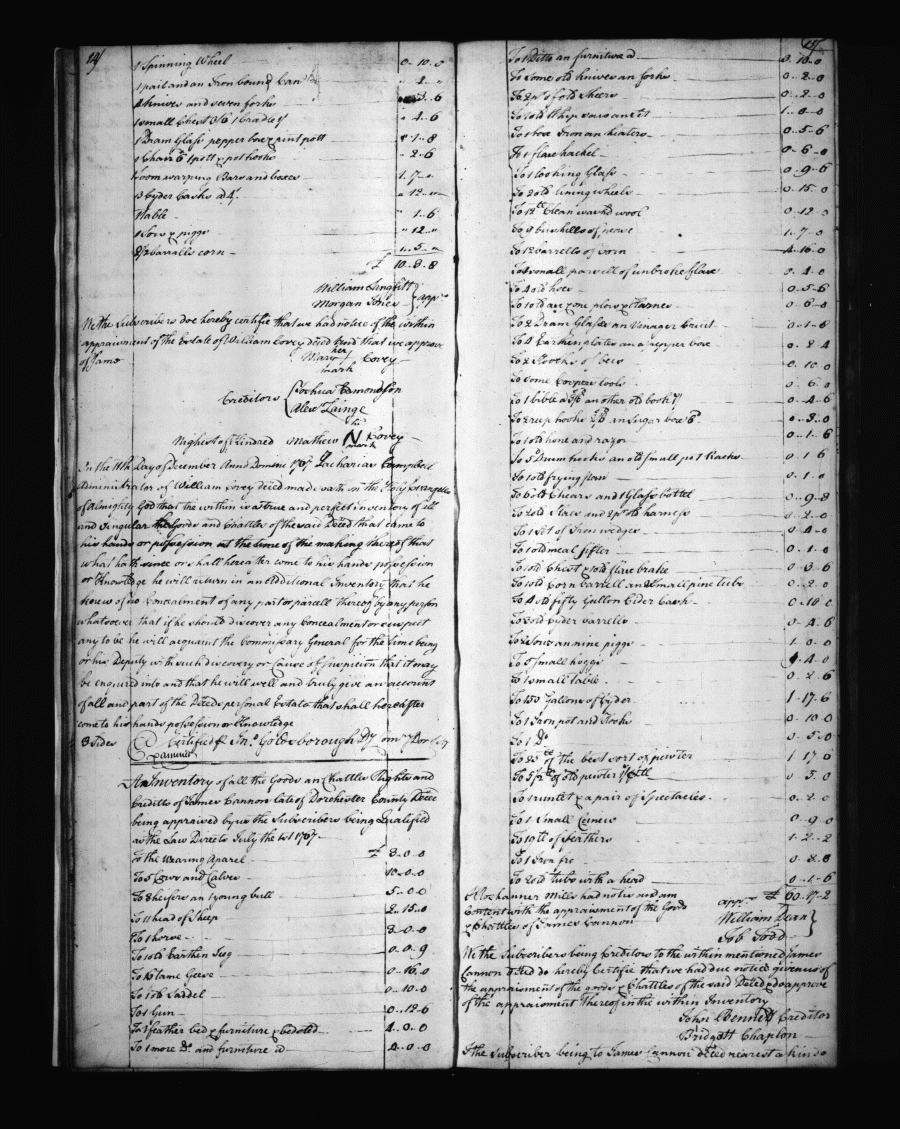 1 Spinning Wheel 0..10..0
1 pail and an Iron bound Can
knives and seven forks 3..6
1 small Chest 3/6 1 Cradle 1/ 4..6
1 Dram Glass pepper box & pint pott 1..8
1 Chair 1 pott & pot hooks 2..6
1 Loom warping Bars and boxes 1..7..0
3 Cyder Casks a 4/ 12
1 table 1..6
1 Sow & piggs 12
barrells corn 1..5
£ 10..8..8
William
Morgan Jones } appr.
We the Subscribers doe hereby certifie that we had notice of the within
appraisment of the Estate of William Covey deced and that we approve
of same
her
Mary Covey
mark
Creditors { Joshua Edmondson
Alexr Lainge
his
Nighest of Kindred Mathew N Covey
mark
On the 11th Day of December Anno Domini 1767 Zacharias Campbell
Administrator of William Covey deced made oath on the Holy Evangelies
of Almighty God that the within is a true and perfect inventory of all
and singular the Goods and Chattles of the said Deced that came to
his hands or possession at the time of the making thereof that
what hath since or shall hereafter come to his hands possession
or Knowledge he will return in an additional Inventory that he
knows of no Concealment of any part or parcell thereof by any person
whatsoever that if he should discover any Concealment or suspect
any to be he will acquaint the Commissary General for the time being
or his Deputy with such discovery or Cause of suspicion that it may
be enquired into and that he will well and truly give an account
of all and part of the Deceds personal Estate that shall hereafter
come to his hands possession or Knowledge
3 Sides Certified Jno. Goldsborough Dy Comry Dor Coty
Examined
An Inventory of all the Goods an Chattles Rights and
Creditts of James Cannon late of Dorchester County Deced
being appraised by us the Subscribers being Qualified
as the Law Directs July the 1767
To the Wearing Aparel £ 3..0..0
To 5 Cows and Calves 10..0..0
To 3 heifers an 1 young bull 5..0..0
To 11 head of Sheep 2..15..0
To 1 horse 3..0..0
To 1 old Earthen Jug 0..0..9
To 16 tame Geese 0..16..0
To 1 old Saddel 0..10..0
To 1 Gun 0..12..6
To 1 feather bed & furniture & bedsted 4..0..0
To 1 more Do. and furniture 4..0..0
To 1 Ditto an furniture 0..10..0
To some old knives an forks 0..2..0
To 2 pr of old Sheers 0..2..0
To 1 old Whip saw 1..0..0
To 1 box Iron an heaters 0..5..6
To 1 flax hackel 0..6..0
To 1 looking Glass 0..9..6
To 2 old lining wheels 0..15..0
To 12 lb Clean washd wool 0..12..0
To 9 bushells of 1..7..0
To 12 barrells of corn 4..16..0
To a small parcell of unbroke flax 0..4..0
To 4 old hoes 0..5..6
To 1 old axe one plow & Harnes 0..6..0
To 2 Dram Glasses an Venager Cruit 0..1..8
To 4 Earthen plates an a pepper box 0..2..4
To 2 Stocks of bees 0..10..0
To some Coopers tools 0..6..0
To 1 bible an other old book 0..4..6
To 2 reap hooks an Sugar box 6d 0..3..0
To 1 old hone and razor 0..1..6
To 5 an old small pot Racks 0..1..6
To 1 old frying pan 0..1..0
To 6 old Chears and 1 Glass bottel 0..9..8
To 2 old Slays and 2 pr old harness 0..2..0
To 1 Set of Iron wedges 0..4..0
To 1 old meal sifter 0..1..0
To 1 old Chest & old flax brake 0..3..6
To 1 old Corn barrell an 2 small pine tubs 0..2..0
To 4 old fifty Gallon Cider Cask 0..18..0
To 3 old cyder barrells 0..4..6
To 2 Sows an nine piggs 1..0..0
To 5 small hoggs 1..4..0
To 1 small table 0..2..6
To 150 Gallons of Cyder 1..17..6
To 1 Iron pot and Hooks 0..10..0
To 1 Do. 0..5..0
To 25 lb of the best sort of pewter 1..17..6
To 5 of old pewter 0..5..0
To 1 runlet & a pair of Spectacles 0..2..0
To 1 Small 0..9..0
To 19 lb of feathers 1..2..2
To 1 Iron 0..2..8
To 2 old tubs with a head 0..1..6
£ 60..17..2
appr.
William Dean
Job Todd }
content with the appraisment of the Goods
& Chattles of James Cannon
We the Subscribers being Creditors to the within mentioned James
Cannon Deced do hereby Certifie that we had due notice given us of
the appraisment of the goods & Chattles of the said Deced & do approve
of the appraisment thereof in the within Inventory
John Bennett Creditor
Bridgett Chaplon
I the Subscriber being to James Cannon Deced nearest a kin so